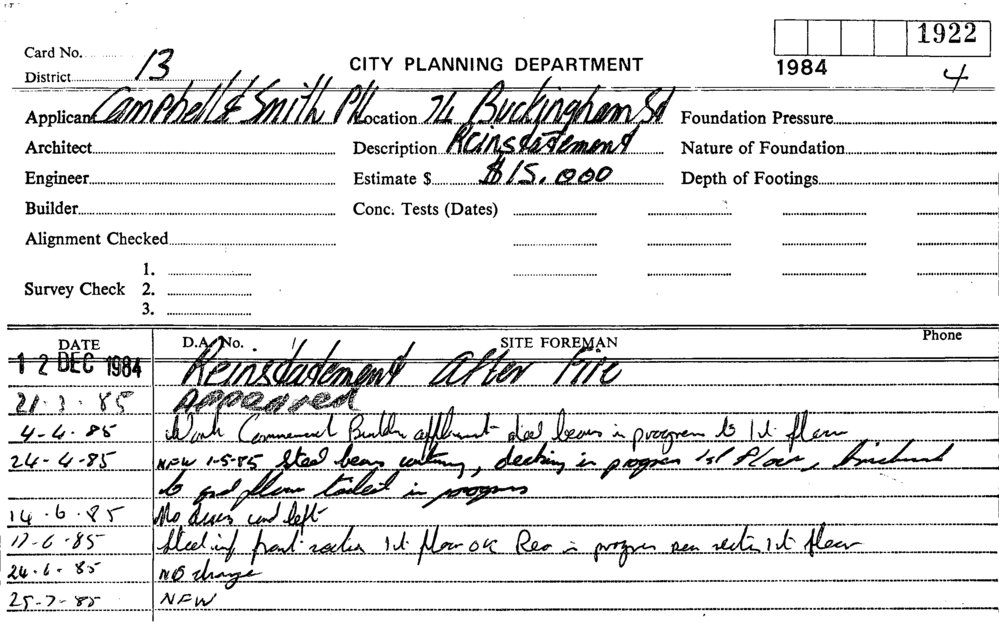 1922
Card No. 13 CITY PLANNING DEPARTMENT 1984
District 4
Applicant Campbell & Smith P/L Location 74 Buckingham St Foundation Pressure
Architect Description Reinstatement Nature of Foundation
Engineer Estimate $ $15,000 Depth of Footings
Builder Conc. Tests (Dates)
Alignment Checked
1.
Survey Check 2.
3.
DATE D.A. No. SITE FOREMAN Phone
12 DEC 1984 Reinstatement After Fire
21.3.85 Approved
4-4-85 Work Commenced Builder steel beams in progress to 1st floor
24-4-85 NFW 1-5-85 Steel beams, decking in progress 1st Floor, Brickwork
to gnd floor toilet in progress
14.6.85 No access card left
17-6-85 front section 1st floor OK Reo in progress rear section 1st floor
24.6.85 No change
25-7-85 NFW